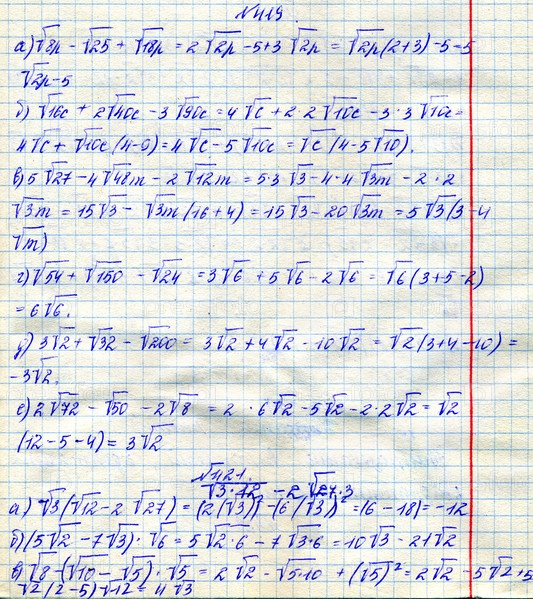 №419.
а) √8p - √25 + √18p = 2√2p - 5 + 3√2p = √2p(2+3) - 5 = 5
√2p - 5
б) √16c + 2√40c - 3√90c = 4√c + 2·2√10c - 3·3√10c =
4√c + √10c(4-9) = 4√c - 5√10c = √c(4-5√10).
в) 5√27 - 4√48m - 2√12m = 5·3√3 - 4·4√3m - 2·2
√3m = 15√3 - √3m(16+4) = 15√3 - 20√3m = 5√3(3-4
√m)
г) √54 + √150 - √24 = 3√6 + 5√6 - 2√6 = √6(3+5-2)
= 6√6.
д) 3√2 + √32 - √200 = 3√2 + 4√2 - 10√2 = √2(3+4-10) =
-3√2.
е) 2√72 - √50 - 2√8 = 2·6√2 - 5√2 - 2·2√2 = √2
(12-5-4) = 3√2
№421.
√3·12 - 2√27·3
а) √3(√12 - 2√27) = (2(√3)² - (6(√3)² = (6-18) = -12
б) (5√2 - 7√3)·√6 = 5√2·6 - 7√3·6 = 10√3 - 21√2
в) √8 - (√10 - √5)·√5 = 2√2 - √5·10 + (√5)² = 2√2 - 5√2 + 5